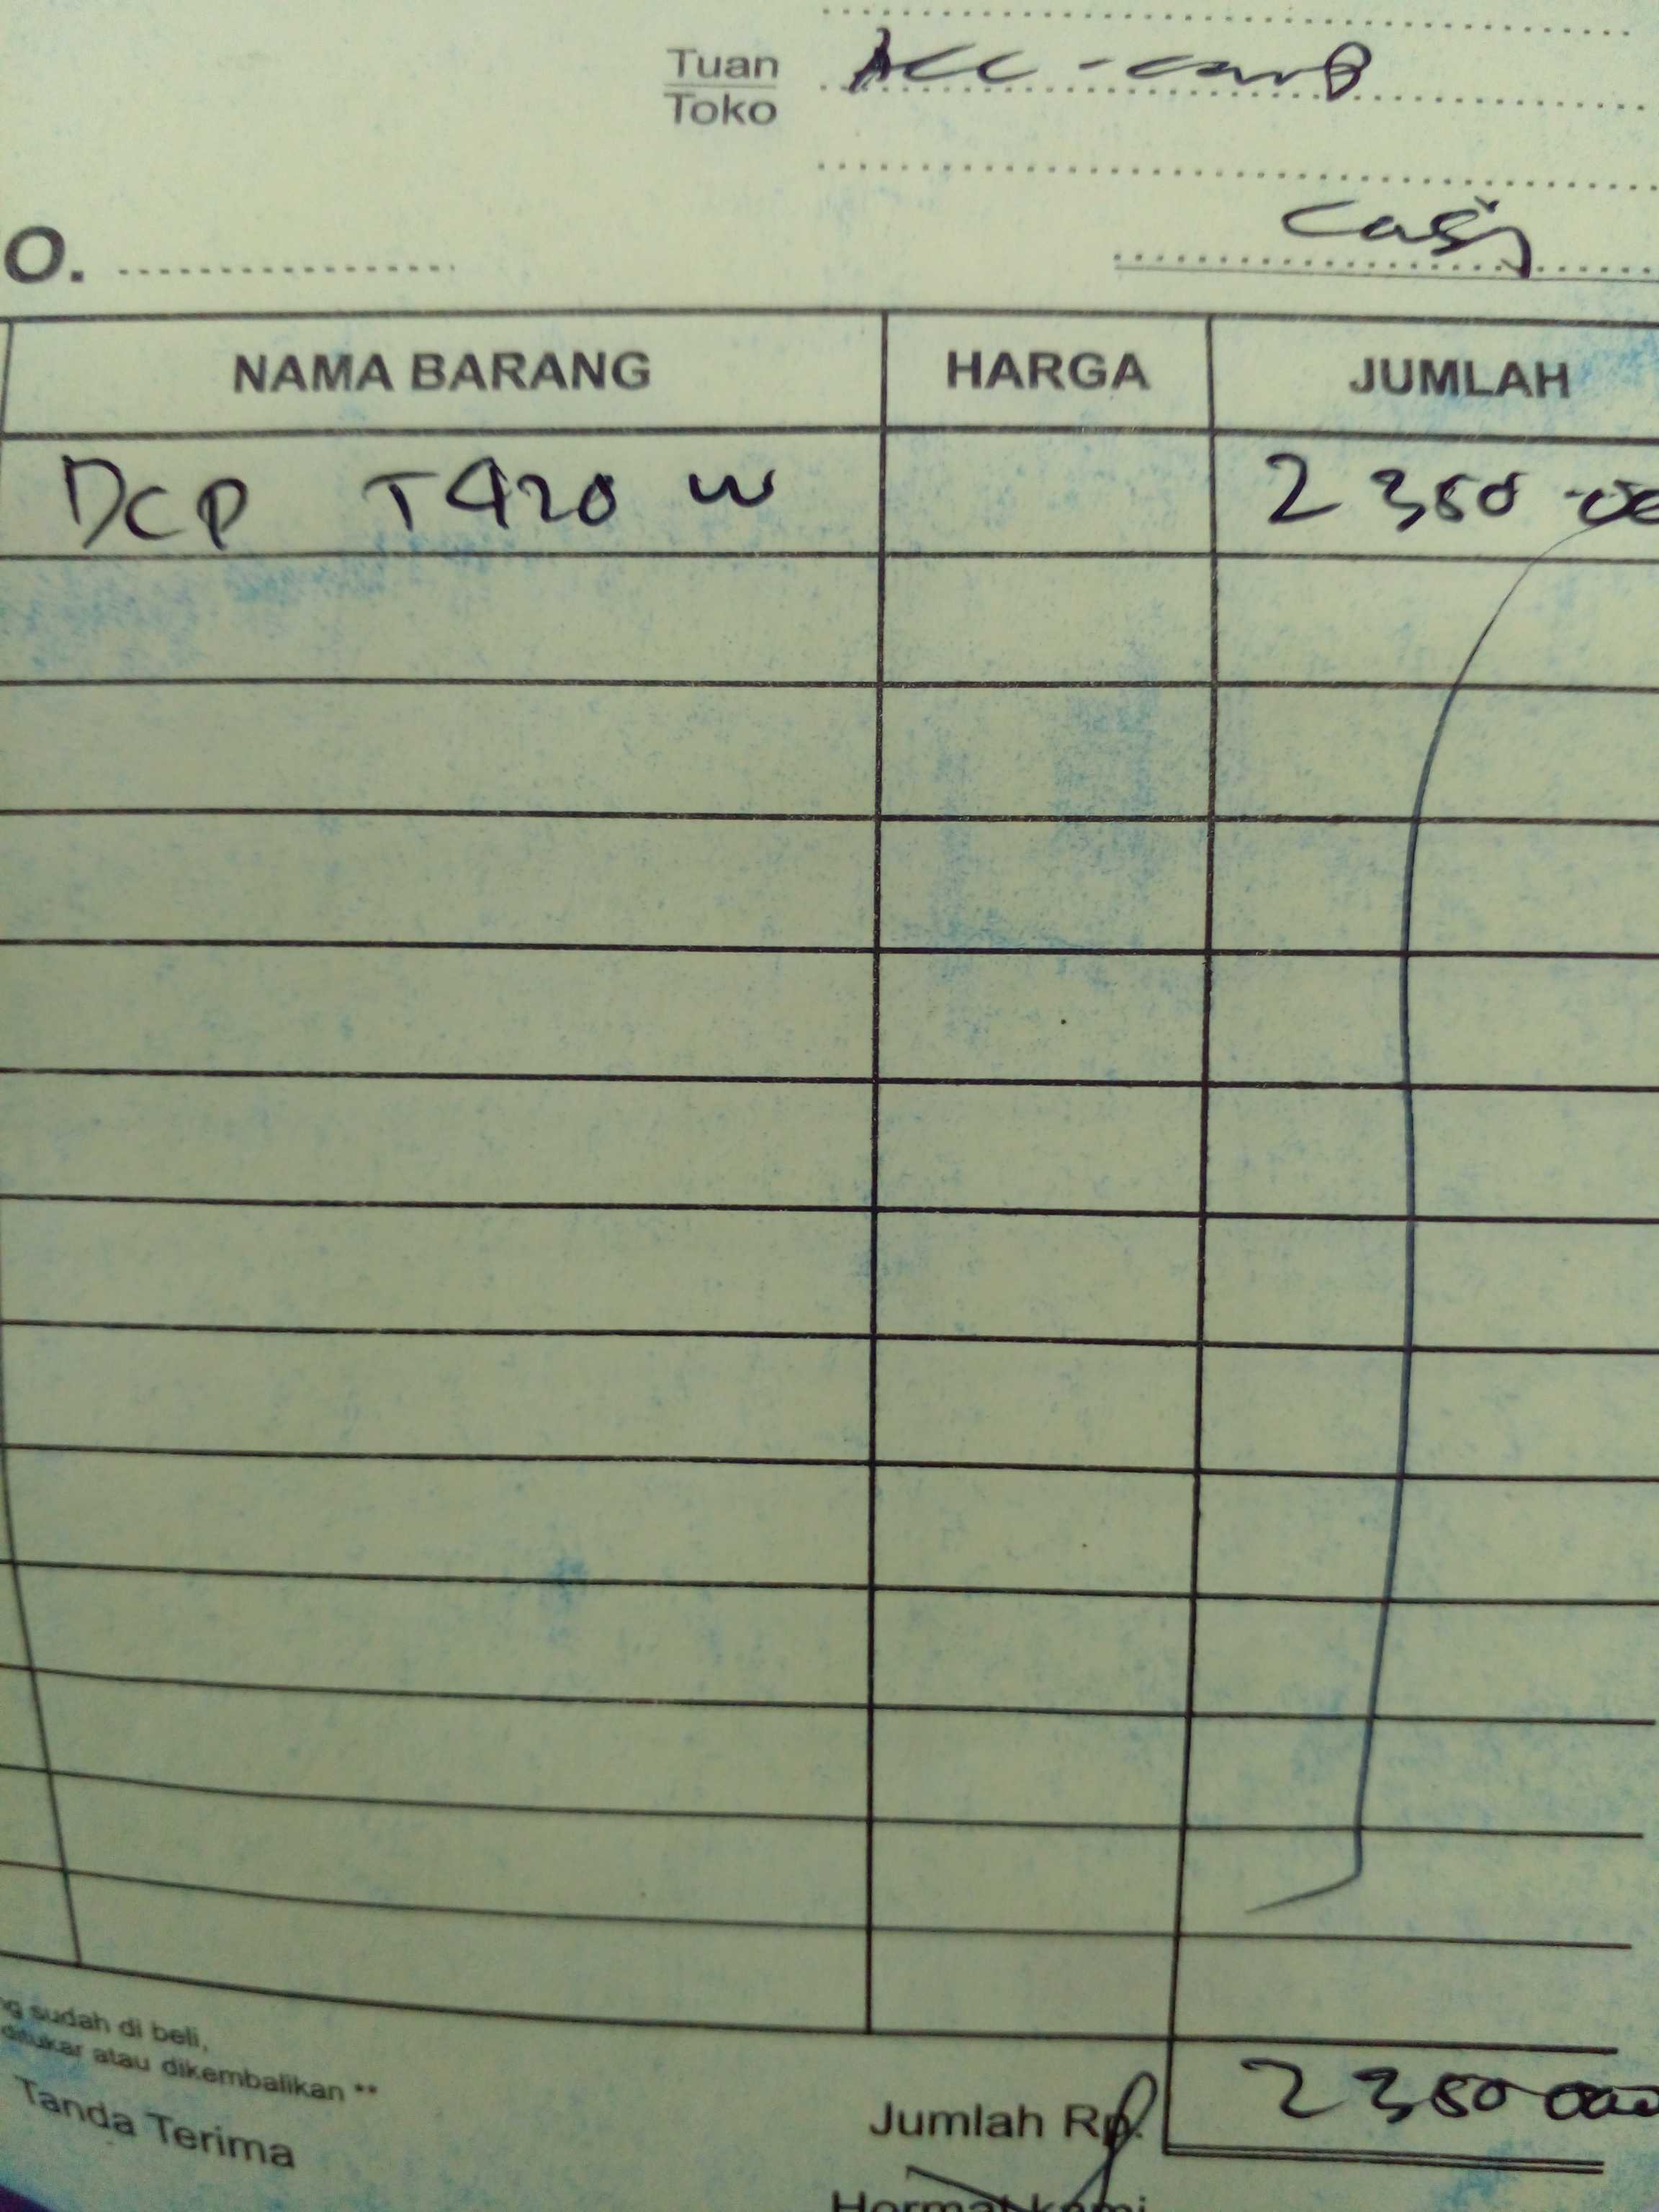 Tuan
Toko
O.
Cash
NAMA BARANG HARGA JUMLAH
DCP T420 W 2 350
sudah di beli,
ditukar atau dikembalikan **
Tanda Terima
Jumlah Rp. 2 350 000
Hormat kami